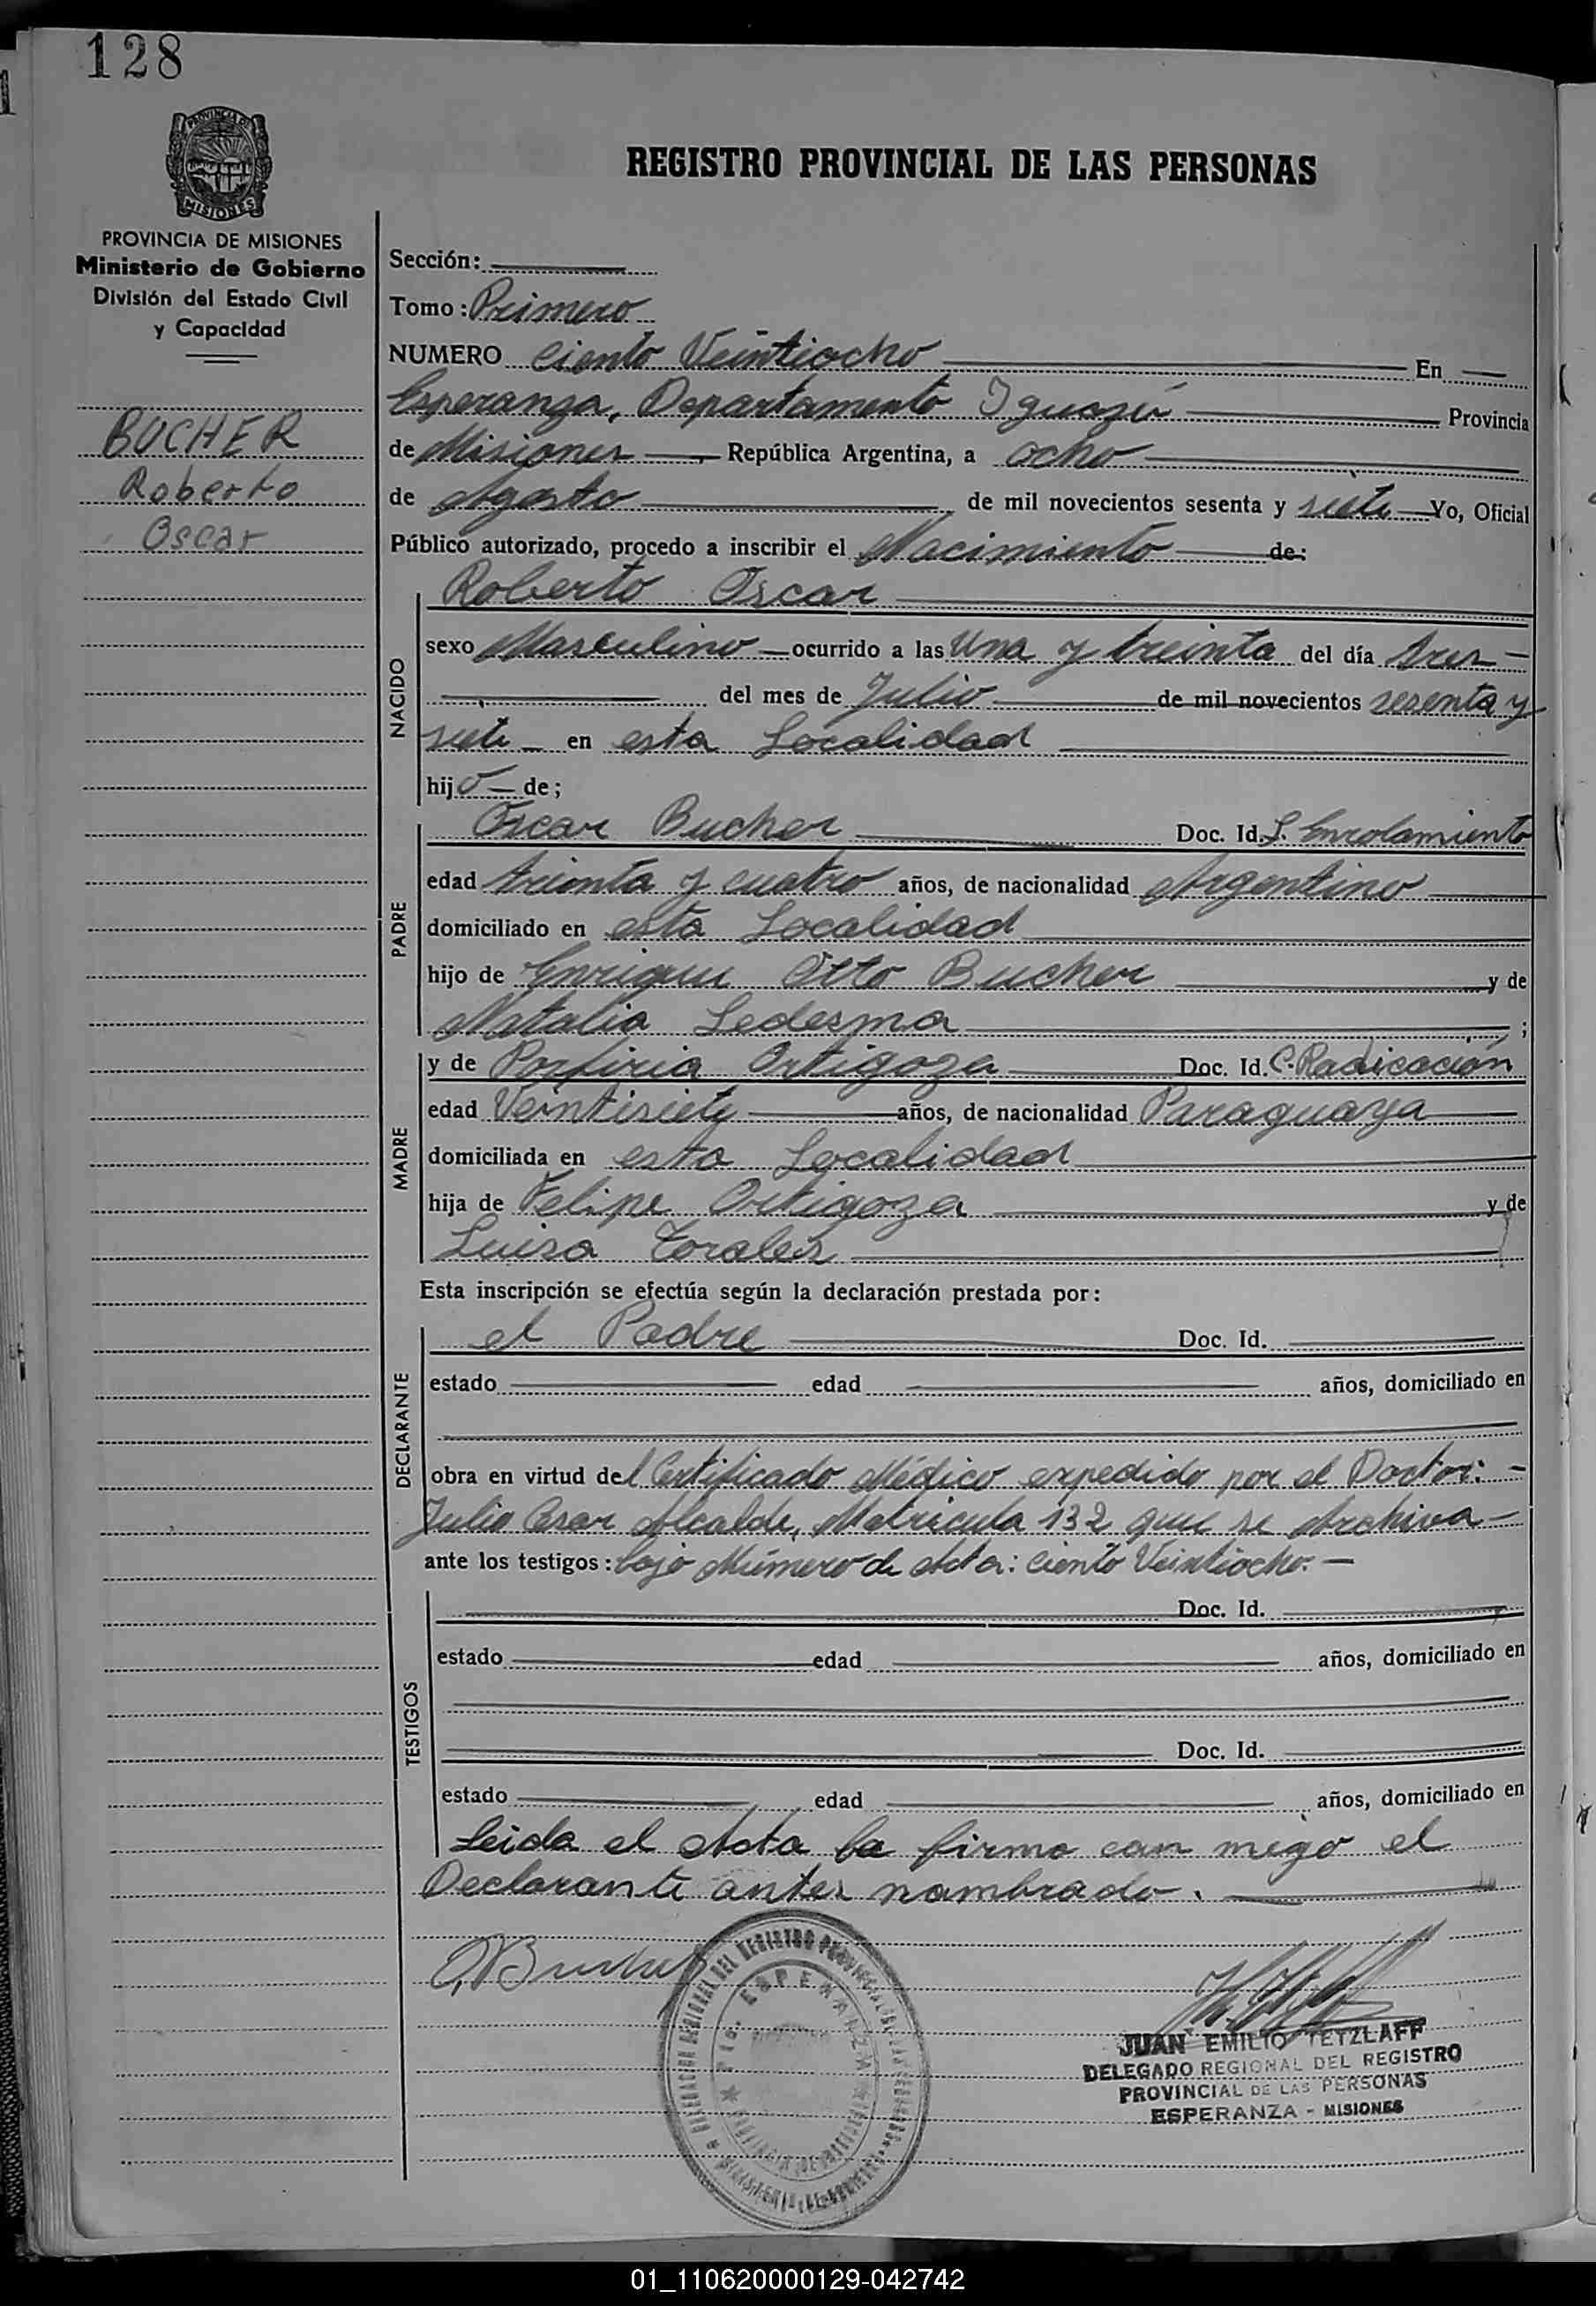 128
REGISTRO PROVINCIAL DE LAS PERSONAS
PROVINCIA DE MISIONES
Ministerio de Gobierno
División del Estado Civil
y Capacidad
BUCHER
Roberto
Oscar
Sección:
Tomo: Primero
NUMERO Ciento Veintiocho En
Esperanza, Departamento Iguazú Provincia
de Misiones República Argentina, a ocho
de Agosto de mil novecientos sesenta y siete Yo, Oficial
Público autorizado, procedo a inscribir el Nacimiento de:
NACIDO
Roberto Oscar
sexo Masculino ocurrido a las Una y treinta del día tres
del mes de Julio de mil novecientos sesenta y
siete en esta Localidad
hijo de;
PADRE
Oscar Bucher Doc. Id. L. Enrolamiento
edad treinta y cuatro años, de nacionalidad Argentino
domiciliado en esta Localidad
hijo de Enrique Otto Bucher y de
Natalia Ledesma ;
MADRE
y de Porfiria Ortigoza Doc. Id. C. Radicación
edad Veintisiete años, de nacionalidad Paraguaya
domiciliada en esta Localidad
hija de Felipe Ortigoza y de
Luisa Torales
Esta inscripción se efectúa según la declaración prestada por:
DECLARANTE
el Padre Doc. Id.
estado edad años, domiciliado en
obra en virtud del Certificado Médico expedido por el Doctor:
Julio Cesar Alcalde, Matricula 132 que se Archiva
ante los testigos: bajo Número de Acta: Ciento Veintiocho.
TESTIGOS
Doc. Id.
estado edad años, domiciliado en
Doc. Id.
estado edad años, domiciliado en
Leida el Acta la firma con migo el
Declarante antes nombrado.
O. Bucher
DELEGACION REGIONAL DEL REGISTRO PROVINCIAL DE LAS PERSONAS
ESPERANZA
JUAN EMILIO TETZLAFF
DELEGADO REGIONAL DEL REGISTRO
PROVINCIAL DE LAS PERSONAS
ESPERANZA - MISIONES
01_110620000129-042742